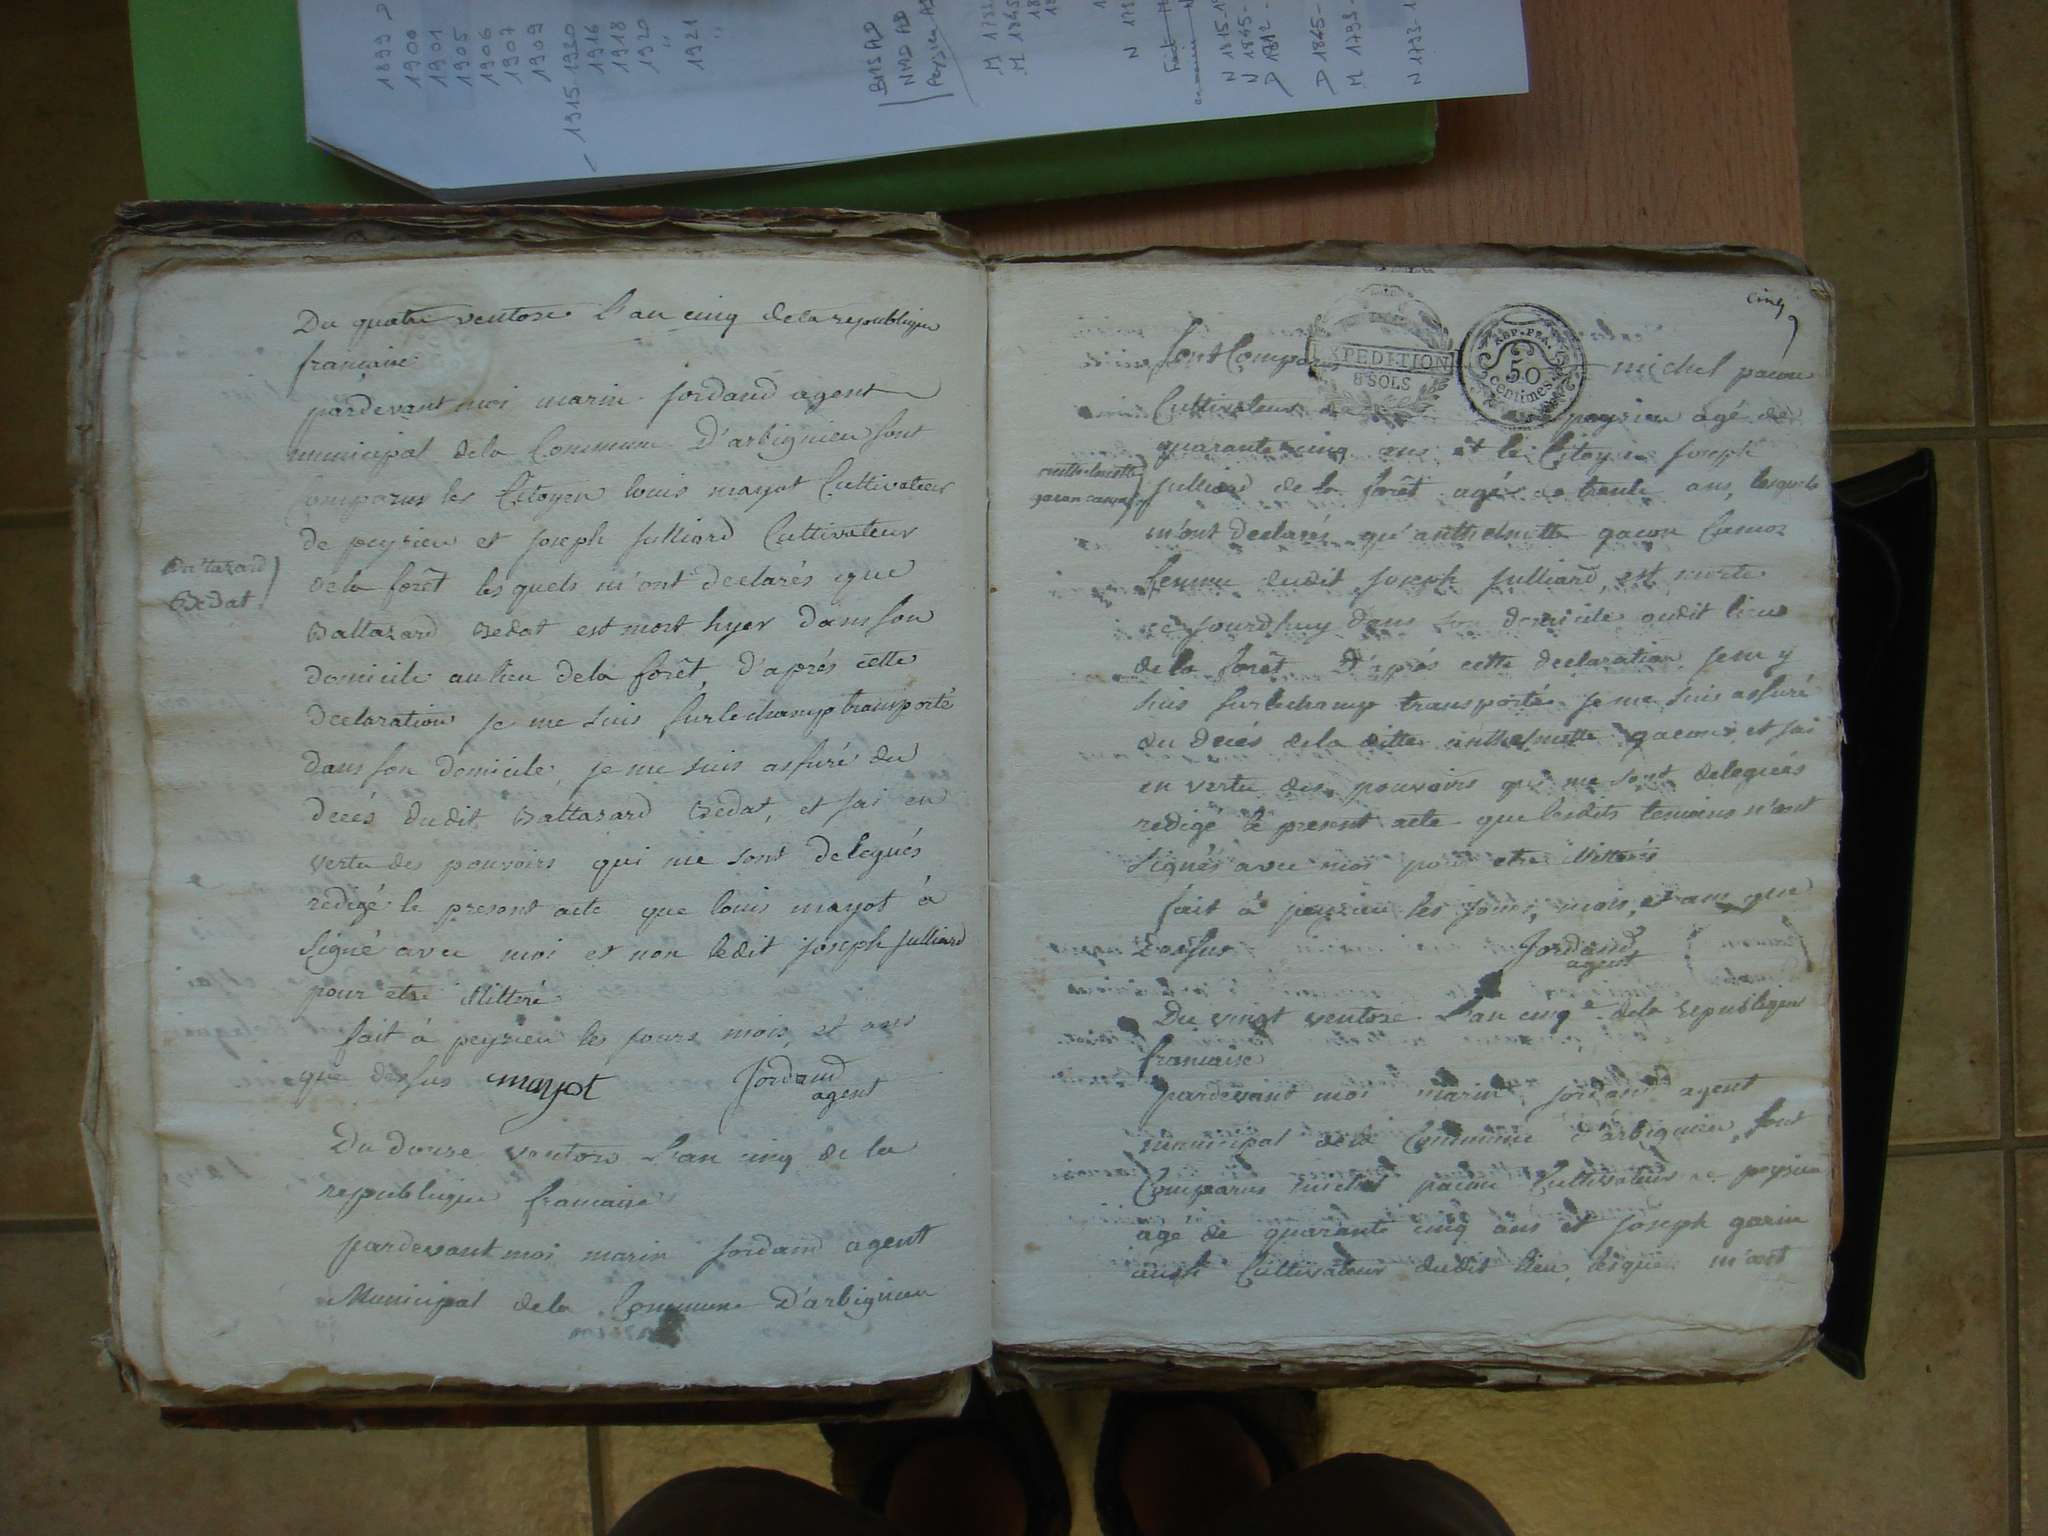 1899
1900
1901
1905
1906
1907
1909
1915-1920
1916
1918
1920
"
1921
"
BMS AD
NMD AD
Peyrieu AD
M 1845
N 1815-
N 1845-
D 1812-
D 1845-
M 1793-
N 1793-1
Du quatre ventose L'an cinq dela republique
francaise
pardevant moi marin jordand agent
municipal dela Commune D'arbignieu sont
Comparus les Citoyen louis mayot Cultivateur
de peyrieu et joseph julliard Cultivateur
dela forêt lesquels m'ont declarés que
Baltazard Bedat est mort hyer dans son
domicile au lieu dela forêt, d'aprés cette
declaration je me suis surlechamp transporté
dans son domicile, je me suis assuré du
decés dudit Baltazard Bedat, et jai en
vertu des pouvoirs qui me sont delegués
redigé le present acte que louis mayot à
signé avec moi et non ledit joseph julliard
pour etre illitteré
fait à peyrieu les jours mois, et ans
que dessus mayot Jordand
agent
Baltazard
Bedat
Du douze ventose L'an cinq de la
republique francaise
pardevant moi marin jordand agent
Municipal dela Commune D'arbignieu
cinq
EXPEDITION
8 SOLS
REP. FRA.
50
centimes
sont Comparus michel pacou
Cultivateur de peyrieu agé de
quarante cinq ans et le Citoyen joseph
julliard de la forêt agé de trente ans, lesquels
m'ont declarés qu'anthelmette gacon Camoz
femme dudit joseph julliard, est morte
ce jourdhuy dans son domicile audit lieu
de la forêt D'aprés cette declaration je m'y
suis surlechamp transporté je me suis assuré
du decés dela ditte anthelmette gacon et jai
en vertu des pouvoirs qui me sont delegués
redigé le present acte que lesdits temoins n'ont
signés avec moi pour etre illitterés
fait à peyrieu les jours, mois, et an que
Dessus Jordand
agent
anthelmette
gacon camoz
Du vingt ventose L'an cinq e dela republique
francaise
pardevant moi marin jordand agent
municipal de la Commune d'arbignieu, sont
Comparus michel pacou Cultivateur de peyrieu
agé de quarante cinq ans et joseph garin
aussi Cultivateur dudit lieu, lesquels m'ont